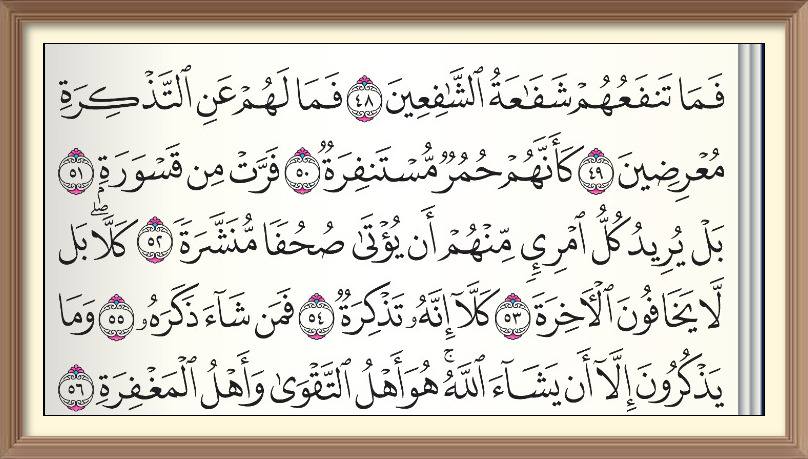 فَمَا تَنفَعُهُمْ شَفَـٰعَةُ ٱلشَّـٰفِعِينَ ٤٨ فَمَا لَهُمْ عَنِ ٱلتَّذْكِرَةِ
مُعْرِضِينَ ٤٩ كَأَنَّهُمْ حُمُرٌ مُّسْتَنفِرَةٌ ٥٠ فَرَّتْ مِن قَسْوَرَةٍۭ ٥١
بَلْ يُرِيدُ كُلُّ ٱمْرِئٍ مِّنْهُمْ أَن يُؤْتَىٰ صُحُفًا مُّنَشَّرَةً ٥٢ كَلَّاۖ بَل
لَّا يَخَافُونَ ٱلْأَخِرَةَ ٥٣ كَلَّآ إِنَّهُۥ تَذْكِرَةٌ ٥٤ فَمَن شَآءَ ذَكَرَهُۥ ٥٥ وَمَا
يَذْكُرُونَ إِلَّآ أَن يَشَآءَ ٱللَّهُۚ هُوَ أَهْلُ ٱلتَّقْوَىٰ وَأَهْلُ ٱلْمَغْفِرَةِ ٥٦